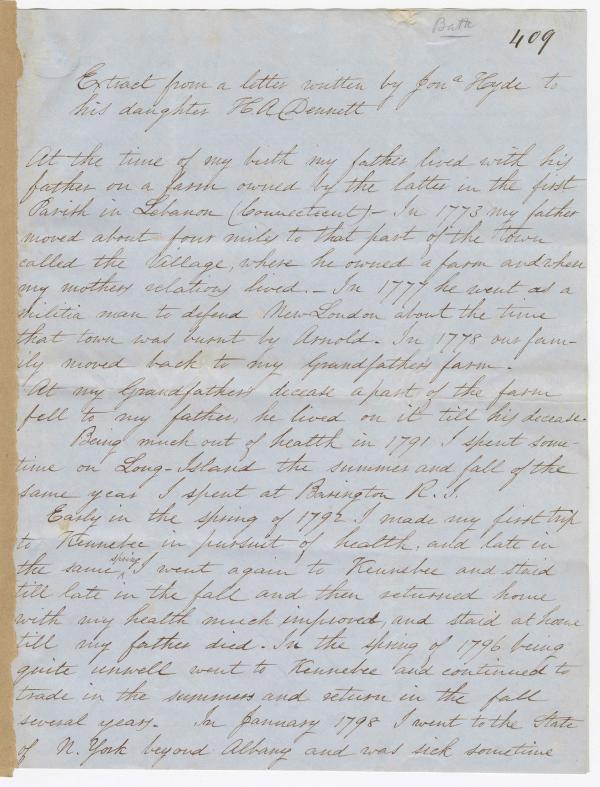 Bath
409
Extract from a letter written by Jonª Hyde to
his daughter H A Dennett
At the time of my birth my father lived with his
father on a farm owned by the latter in the first
Parish in Lebanon (Connecticut) - In 1773 my father
moved about four miles to that part of the town
called the Village, where he owned a farm and where
my mothers relations lived. - In 1777 he went as a
militia man to defend New London about the time
that town was burnt by Arnold. In 1778 our fam-
ily moved back to my Grandfathers farm.
At my Grandfathers decease a part of the farm
fell to my father, he lived on it till his decease.
Being much out of health in 1791 I spent some-
time on Long-Island the summer and fall of the
same year I spent at Barington R. I.
Early in the spring of 1792 I made my first trip
to Kennebec in pursuit of health, and late in
the same spring I went again to Kennebec and staid
till late in the fall and then returned home
with my health much improved, and staid at home
till my father died. In the spring of 1796 being
quite unwell went to Kennebec and continued to
trade in the summers and return in the fall
several years. In January 1798 I went to the State
of N. York beyond Albany and was sick sometime